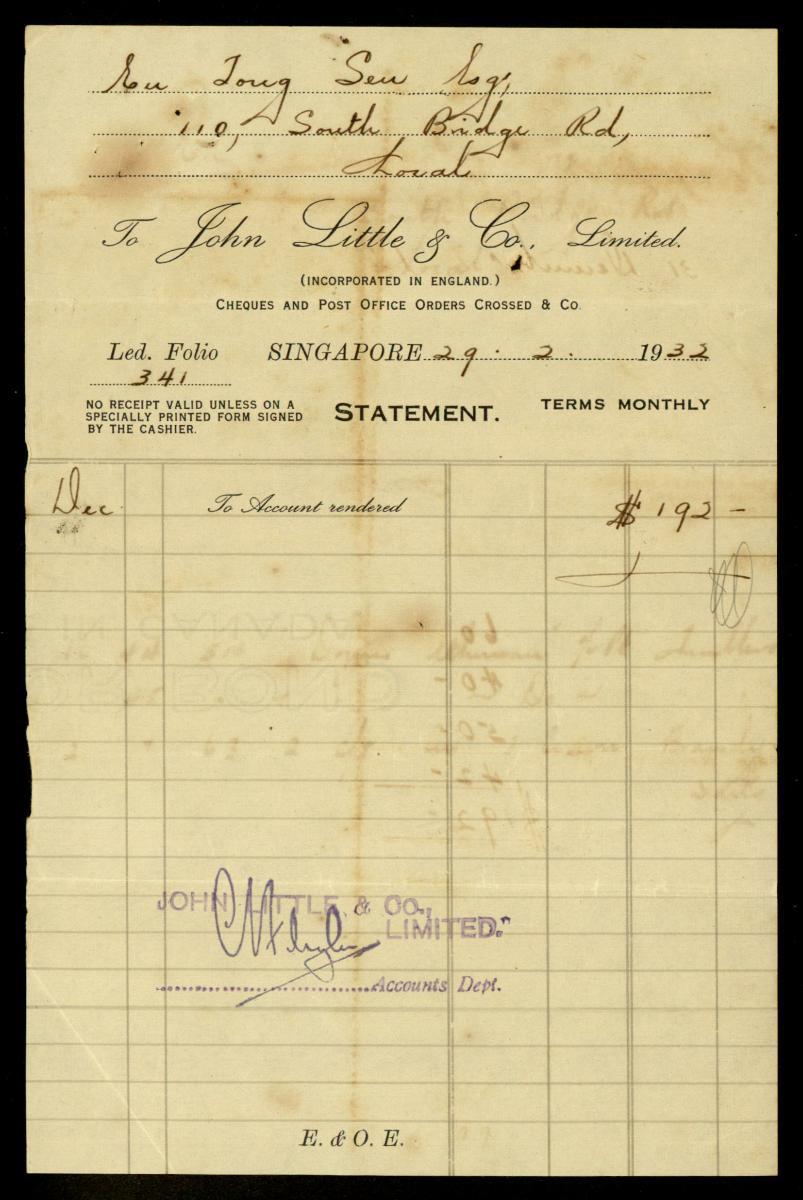 Eu Tong Sen Esq,
110, South Bridge Rd,
Local
To John Little & Co., Limited.
(INCORPORATED IN ENGLAND.)
CHEQUES AND POST OFFICE ORDERS CROSSED & CO.
Led. Folio SINGAPORE 29. 2. 1932
341
NO RECEIPT VALID UNLESS ON A
SPECIALLY PRINTED FORM SIGNED
BY THE CASHIER.
STATEMENT. TERMS MONTHLY
Dec To Account rendered $ 192 -
JOHN LITTLE & CO.,
LIMITED.
Accounts Dept.
E. & O. E.